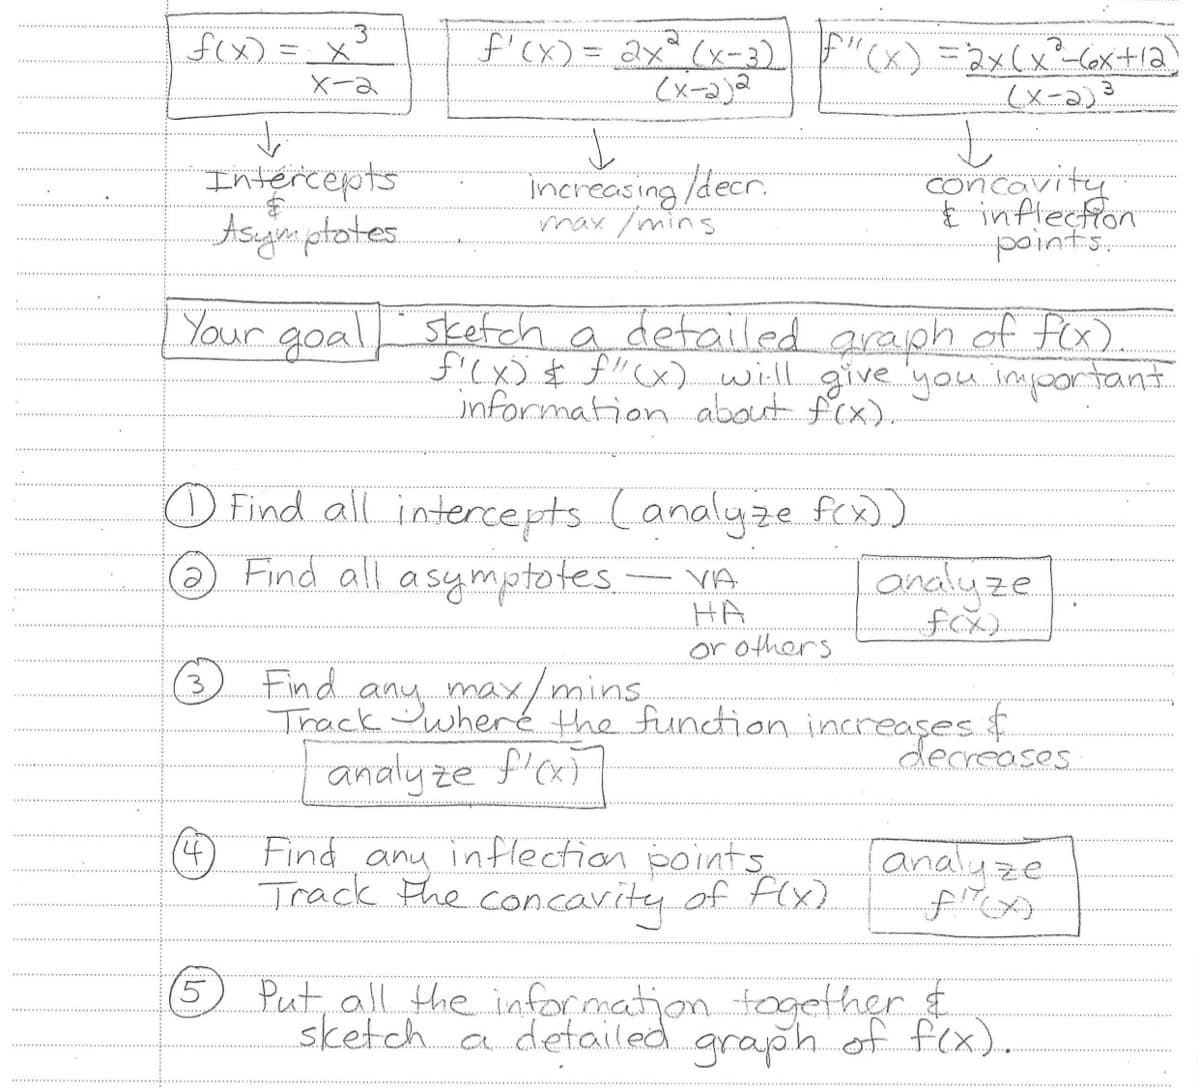 f(x) = x³/(x-2)
f'(x) = 2x²(x-3)/(x-2)²
f''(x) = 2x(x²-6x+12)/(x-2)³
↓
Intercepts
&
Asymptotes
↓
increasing/decr.
max/mins
↓
concavity
& inflection
points.
Your goal: sketch a detailed graph of f(x).
f'(x) & f''(x) will give you important
information about f(x).
① Find all intercepts (analyze f(x))
② Find all asymptotes — VA
HA
or others
analyze
f(x)
③ Find any max/mins
Track where the function increases &
decreases
analyze f'(x)
④ Find any inflection points
Track the concavity of f(x)
analyze
f''(x)
⑤ Put all the information together &
sketch a detailed graph of f(x).